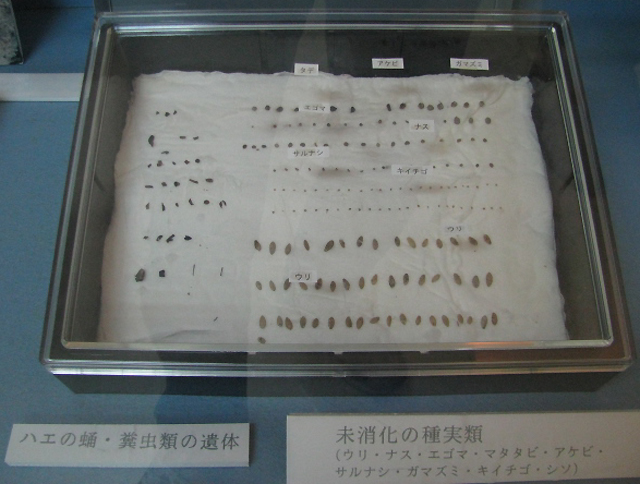 タデ
アケビ
ガマズミ
エゴマ
ナス
サルナシ
キイチゴ
ウリ
ウリ
ハエの蛹・糞虫類の遺体
未消化の種実類
(ウリ・ナス・エゴマ・マタタビ・アケビ・
サルナシ・ガマズミ・キイチゴ・シソ)